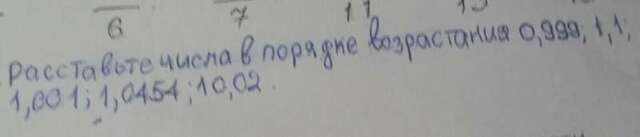 6 7 11 13
Расставьте числа в порядке возрастания 0,999; 1,1;
1,001; 1,0454; 10,02.